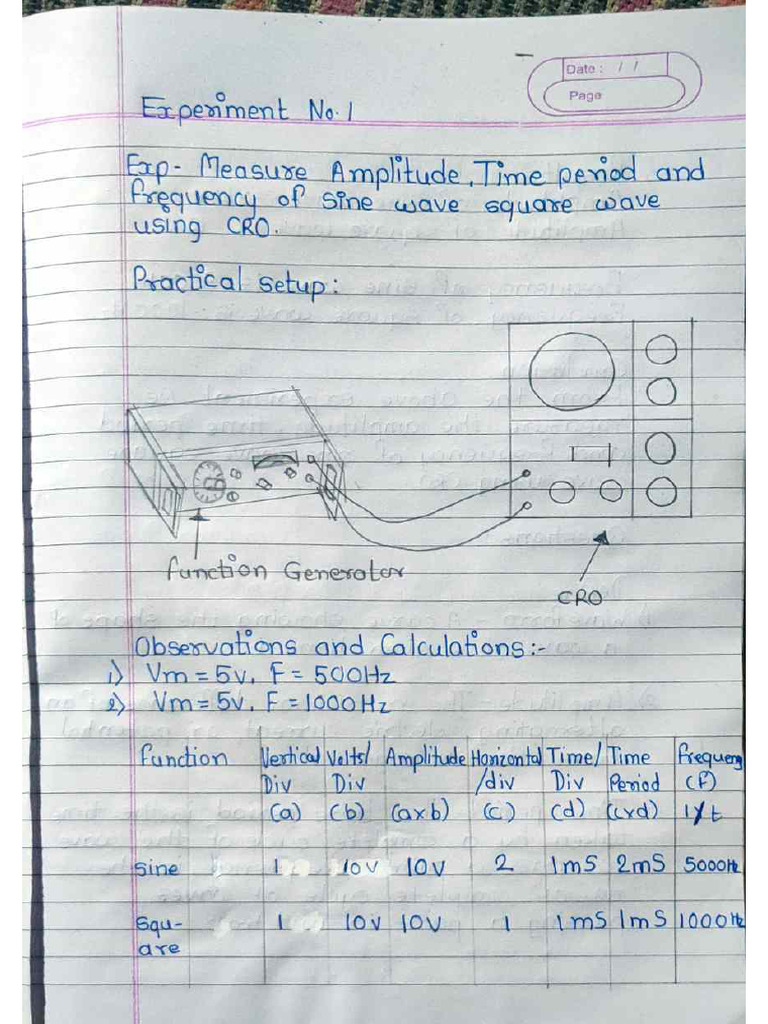 Date : / /
Page
Experiment No. 1
Exp - Measure Amplitude, Time period and
frequency of sine wave square wave
using CRO.
Practical setup :
function Generator
CRO
Observations and Calculations :-
1) Vm = 5v, F = 500Hz
2) Vm = 5v, F = 1000Hz
function Vertical Volts/ Amplitude Horizontal Time/ Time frequency
Div Div /div Div Period (f)
(a) (b) (a x b) (c) (d) (cxd) 1/t
Sine 1 10v 10v 2 1mS 2mS 5000Hz
Squ- 1 10v 10v 1 1mS 1mS 1000Hz
are